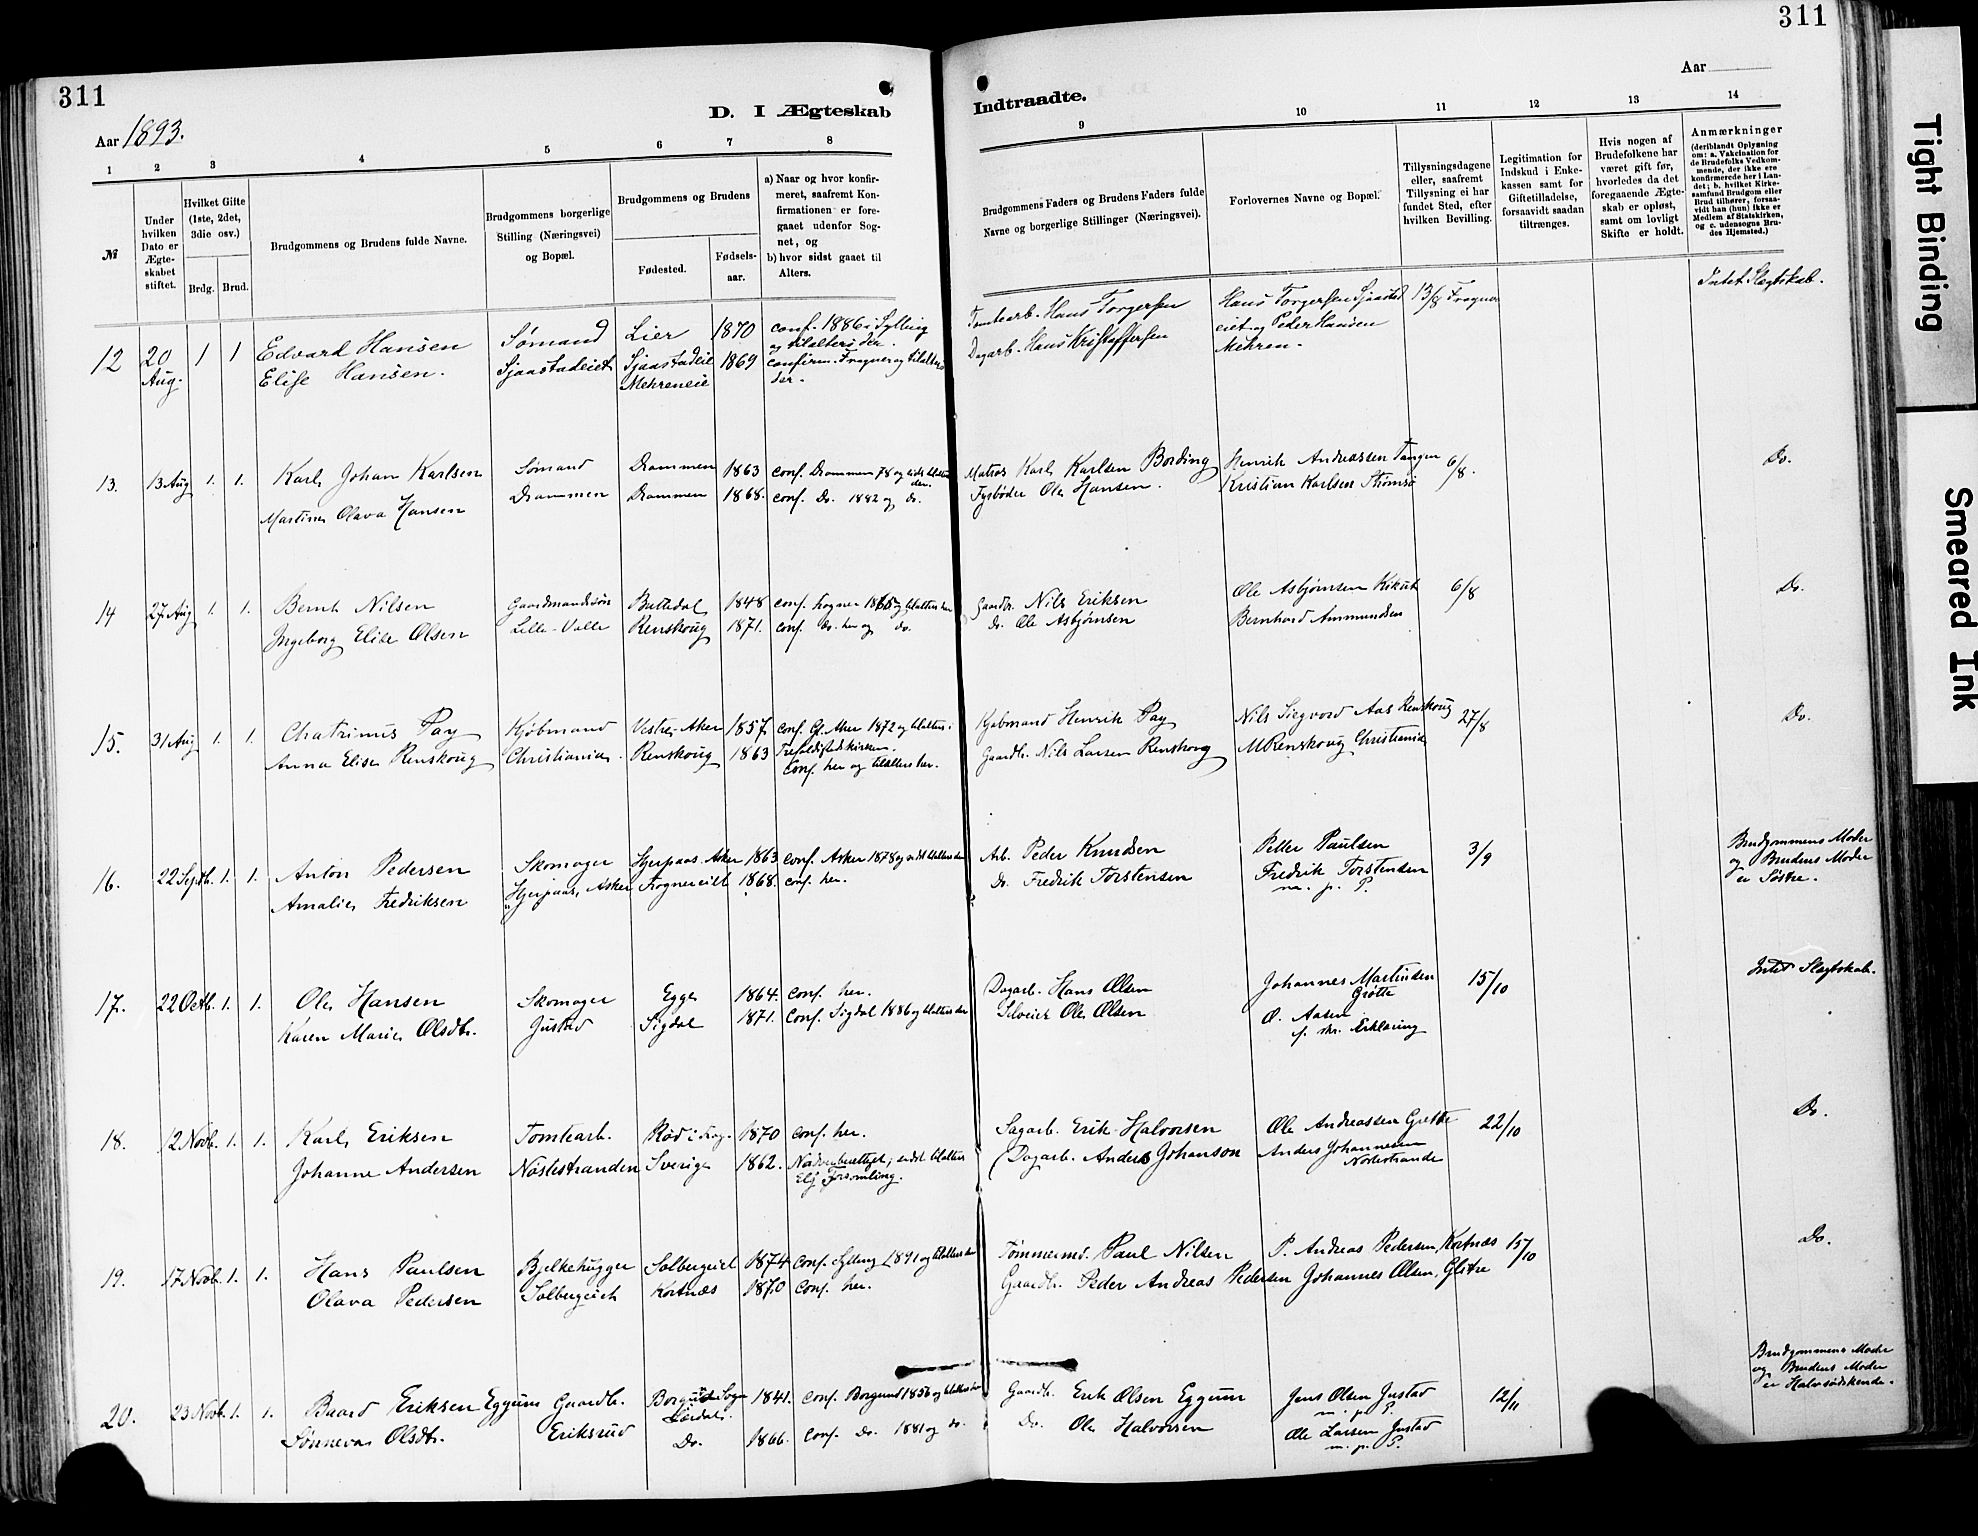 311
311
Aar 1893.
D. I Ægteskab
Indtraadte.
Aar
1 2 3 4 5 6 7 8
9 10 11 12 13 14
№
Under hvilken Dato er Ægteskabet stiftet.
Hvilket Gifte (1ste, 2det, 3die osv.)
Brdg. Brud.
Brudgommens og Brudens fulde Navne.
Brudgommens borgerlige Stilling (Næringsvei) og Bopæl.
Brudgommens og Brudens
Fødested.
Fødsels-aar.
a) Naar og hvor konfirmeret, saafremt Konfirmationen er foregaaet udenfor Sognet, og
b) hvor sidst gaaet til Alters.
Brudgommens Faders og Brudens Faders fulde Navne og borgerlige Stillinger (Næringsvei).
Forlovernes Navne og Bopæl.
Tillysningsdagene eller, saafremt Tillysning ei har fundet Sted, efter hvilken Bevilling.
Legitimation for Indskud i Enkekassen samt for Giftetilladelse, forsaavidt saadan tiltrænges.
Hvis nogen af Brudefolkene har været gift før, hvorledes da det foregaaende Ægteskab er opløst, samt om lovligt Skifte er holdt.
Anmærkninger (deriblandt Oplysning om: a. Vakcination for de Brudefolks Vedkommende, der ikke ere konfirmerede her i Landet; b. hvilket Kirkesamfund Brudgom eller Brud tilhører, forsaavidt han (hun) ikke er Medlem af Statskirken, og c. udensogns Brudes Hjemsted.)
12 20 Aug. 1 1 Edvard Hansen Sømand Lier 1870 conf. 1886 i Sylling og tilalters der. Tomtearb. Hans Torgersen Hans Torgersen Sjaastadeiet og Peder Hansen Mehren. 13/8 Frogner Intet Slægtskab.
Elise Hansen. Sjaastadeiet Sjaastadeie Mehreneie 1869 confirm. Frogner og tilalters der. Dagarb. Hans Kristoffersen
13. 13 Aug 1. 1. Karl Johan Karlsen Sømand Drammen 1863 conf. Drammen 78 og sidst tilalters der. Matros Karl Karlsen Bording Henrik Andreassen Tangen 6/8. Do.
Martine Olava Hansen Drammen Drammen 1868. conf. Do. 1882 og do. Fyrbøder Ole Hansen. Kristian Karlsen Strømsø
14 27 Aug 1. 1. Bernh. Nilsen Gaardmandssøn 1848 conf. Frogner 1865 og tilalters her Gaardbr. Nils Eriksen Ole Asbjørnsen Kikut 6/8 Do.
Ingeborg Elise Olsen Lille-Valle Renskoug 1871. conf. do. her og do. do. Ole Asbjørnsen Bernhard Ammundsen
15. 31 Aug 1. 1. Chatrinus Pay Kjøbmand Vestre-Aker 1857 conf. Gl. Aker 1872 og tilalters i Trefoldighedskirken. Kjøbmand Henrik Pay Nils Siegvord Aas Renskoug 27/8 Do.
Anna Elise Renskoug Christiania. Renskoug 1863 Conf. her og tilalters her. Gaardbr. Nils Larsen Renskoug M Renskoug Christiania
16. 22 Septb. 1. 1. Anton Pedersen Skomager Hjerpaas. Asker 1863 conf. Asker 1878 og sidst tilalters der Arb. Peder Knudsen Petter Paulsen 3/9 Brudgommens Moder og Brudens Moder er Søstre.
Amalie Fredriksen Hjerpaas, Asker Frognereiet 1868. conf. her. Do. Fredrik Torstensen Fredrik Torstensen m. p. P.
17. 22 Octb. 1. 1. Ole Hansen Skomager Egge 1864. conf. her. Dagarb. Hans Olsen Johannes Martinsen Grøtte 15/10 Intet Slægtskab.
Karen Marie Olsdtr. Justad Sigdal 1871. Conf. Sigdal 1886 og tilalters der Selveier Ole Olsen O. Aasen f. skr. Erklæring
18. 12 Novb. 1. 1. Karl Eriksen Tomtearb. Rød i Frog. 1870 conf. her. Sagarb. Erik Halvorsen Ole Andreassen Grette 22/10 Do.
Johanne Andersen Nøstestranden Sverige 1862. Nadverberettiget; sidst tilalters Elj. Forsamling. Dagarb. Anders Johanson Anders Johannesen Nøstestranda
19. 17 Novb. 1. 1. Hans Paulsen Bjelkehugger Solbergeiet 1874 Conf. Sylling 1891 og tilalters der Tømmermd. Paul Nilsen P. Andreas Pedersen, Kortnæs 15/10 Do.
Olava Pedersen Solbergeiet Kortnæs 1870 Conf. her. Gaardbr. Peder Andreas Pedersen Johannes Olsen, Glitre
20. 23 Novb. 1. 1. Baard Eriksen Eggum Gaardb. Borgunds Sogn Lærdal. 1841. Conf. Borgund 1856 og tilalters her Gaardb. Erik Olsen Eggum Jens Olsen Justad m. p. P. 12/11 Brudgommens Moder og Brudens Moder er Halvsødskende.
Sønneva Olsdtr. Eriksrud Do. 1866. Conf. Do. 1881 og do. Do. Ole Halvorsen Ole Larsen Justad m. p. P.
Tight Binding
Smeared Ink